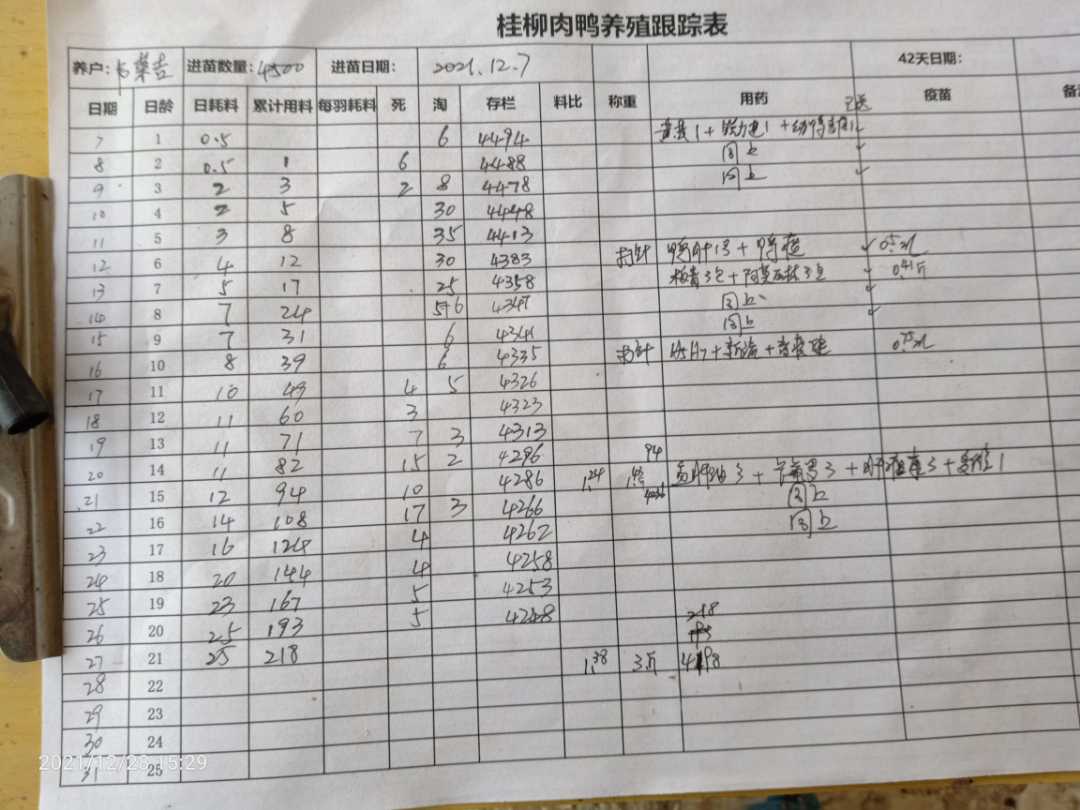 桂柳肉鸭养殖跟踪表
养户: 进苗数量:4500 进苗日期: 2021.12.7 42天日期:
日期 日龄 日耗料 累计用料 每羽耗料 死 淘 存栏 料比 称重 用药 疫苗 备
7 1 0.5 6 4494
8 2 0.5 1 6 4488 同上
9 3 2 3 2 8 4478 同上
10 4 2 5 30 4448
11 5 3 8 35 4413
12 6 4 12 30 4383 打针
13 7 5 17 25 4358
14 8 7 24 5+6 4347 同上
15 9 7 31 6 4341 同上
16 10 8 39 6 4335 打针
17 11 10 49 4 5 4326
18 12 11 60 3 4323
19 13 11 71 7 3 4313
20 14 11 82 15 2 4296 94
21 15 12 94 10 4286 1.24 同上
22 16 14 108 17 3 4266 同上
23 17 16 124 4 4262
24 18 20 144 4 4258
25 19 23 167 5 4253
26 20 25 193 5 4248 218
27 21 25 218 1.38 3斤 4198
28 22
29 23
30 24
31 25
2021/12/28 15:29